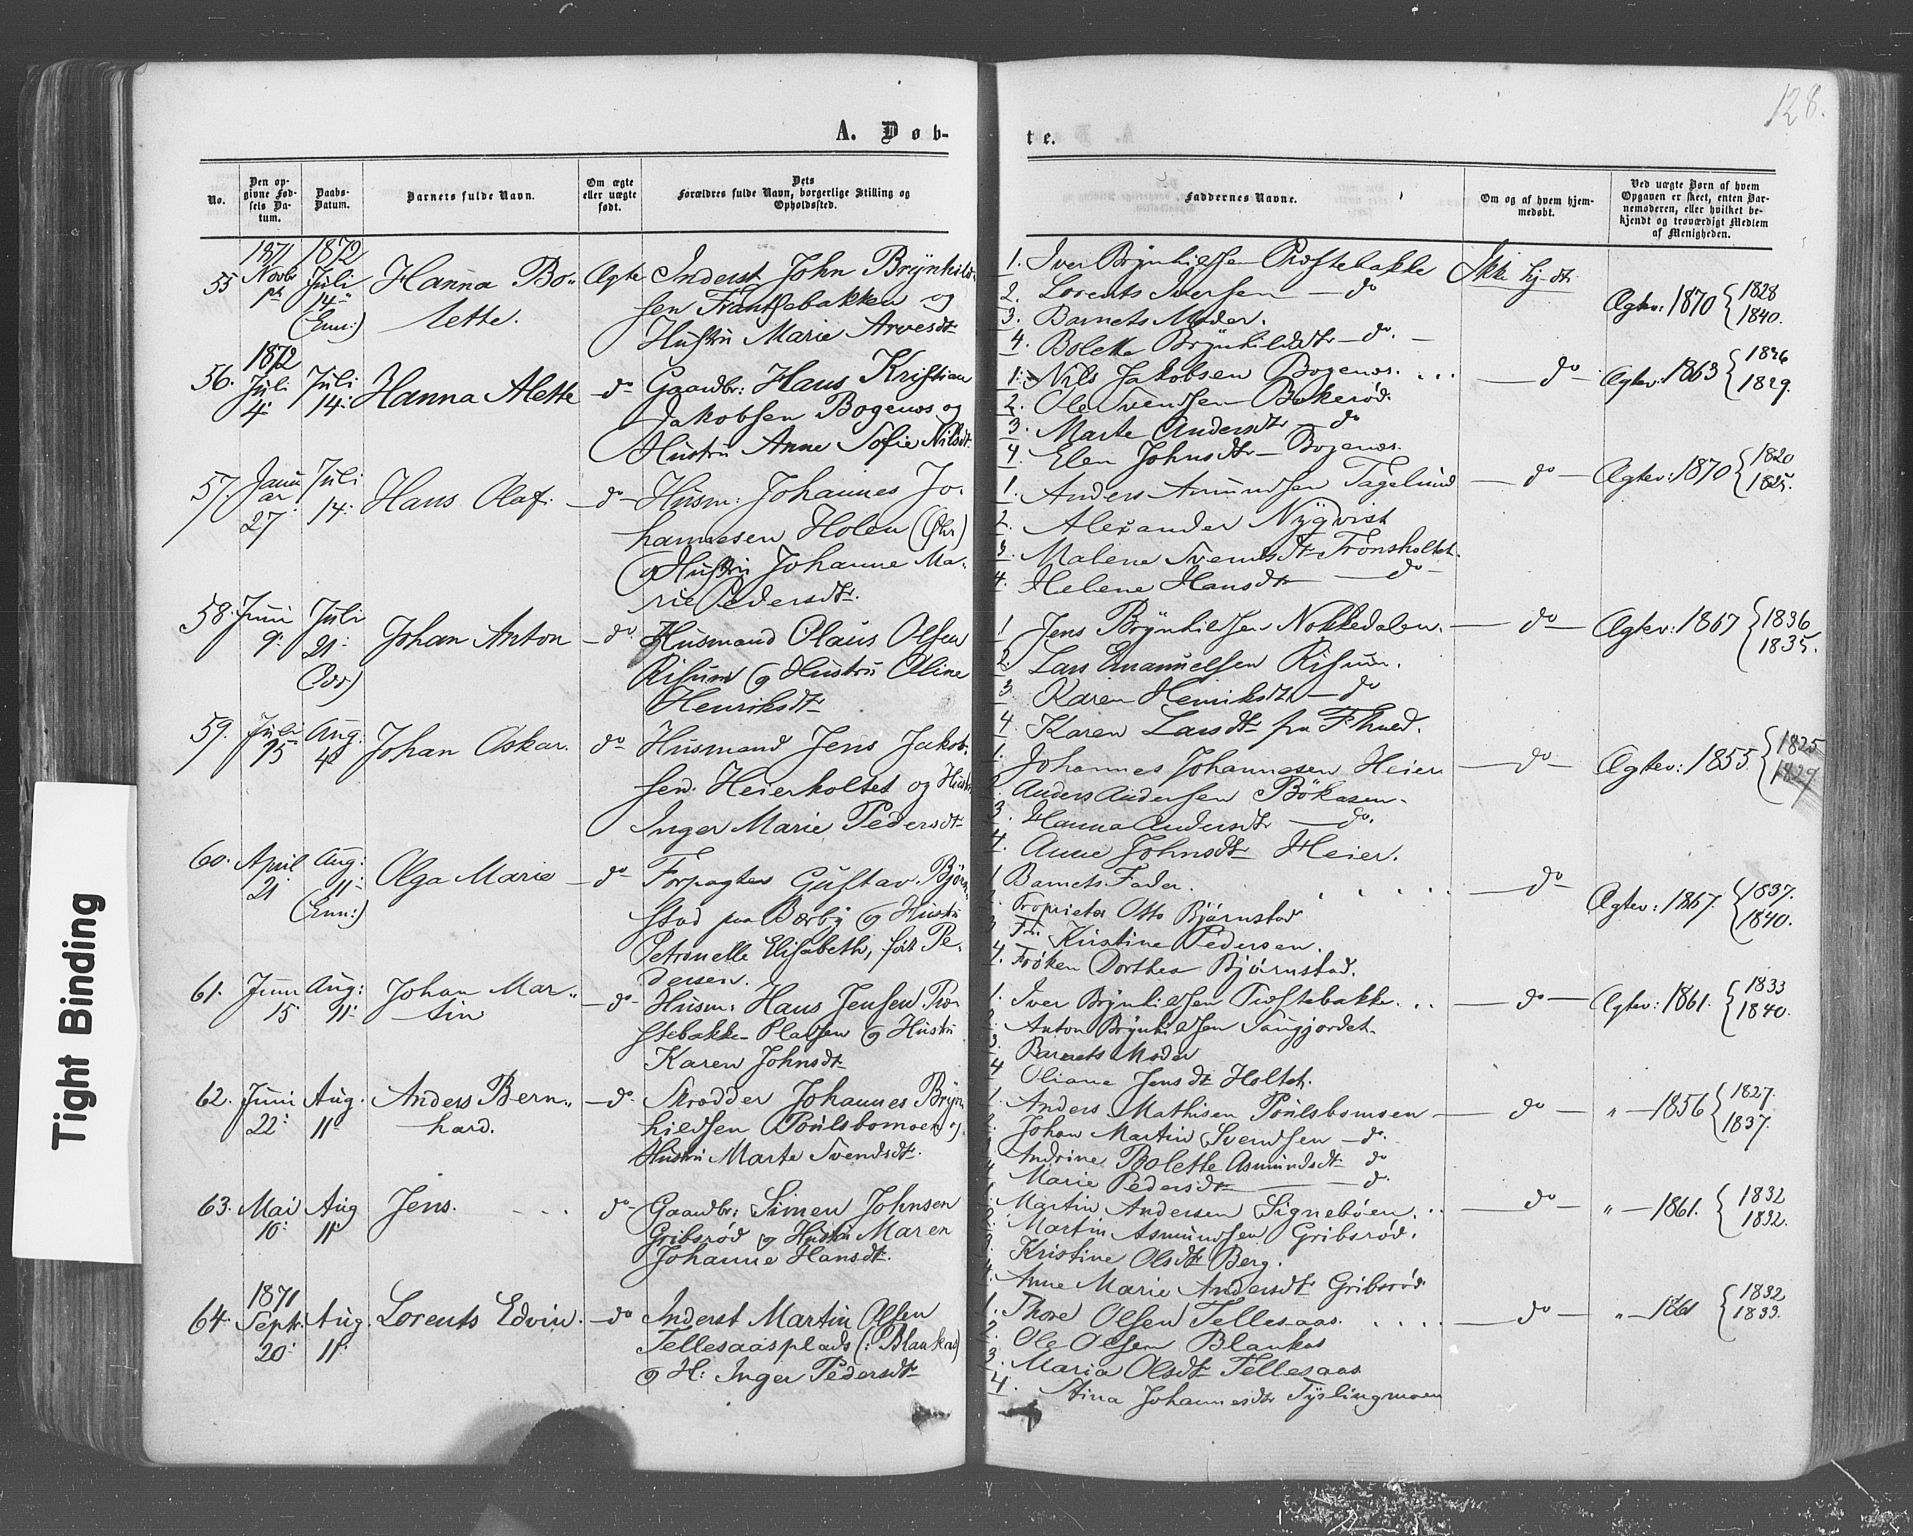 128.
A. Døb-
te.
No.
Den op-
givne Fød-
sels Da-
tum.
Daabs-
Datum.
Barnets fulde Navn.
Om ægte
eller uægte
født.
Dets
Forældres fulde Navn, borgerlige Stilling og
Opholdssted.
Faddernes Navne.
Om og af hvem hjem-
medøbt.
Ved uægte Børn af hvem
Opgaven er skeet, enten Bar-
nemoderen, eller hvilket be-
kjendt og troværdigt Medlem
af Menigheden.
55
1871
Novbr
1872
Juli
14
(Enn:)
Hanna Bo-
lette.
Ægte
Inderst John Brynhild-
sen og
Hustru Marie Arvesdt
1. Iver Brynhildsen Præstebakke
2. Lorents Iversen - do
3. Barnets Moder.
4. Bolette Brynhildsdt - do. -
Ikke hj. dt
Ægtev: 1870 { 1828
1840.
56.
1872
Juli
4.
Juli
14.
Hanna Alette
- do
Gaardbr: Hans Kristian
Jakobsen Bogenæs og
Hustru Anne Sofie Nilsdt
1. Nils Jakobsen Bogenæs. ...
2. Ole Svendsen Bakerød
3. Marte Andersdtr do
4. Elen Johnsdtr - Bogenæs.
- do -
Ægtev: 1863 { 1836
1829.
57.
Janu
ar
27
Juli
14.
Hans Olaf.
- do -
Husm: Johannes Jo-
hannesen Holen (Øhr)
og Hustru Johanne Ma-
rie Pedersdt.
1. Anders Amundsen Tagelund
2. Alexander Nyqvist
3. Malene Svendsdt Tronsholtet.
4. Helene Hansdt - do -
- do -
Ægtev: 1870 { 1820
1825.
58.
Juni
9.
Juli
21.
Johan Anton
- do
Husmand Olaus Olsen
Risum og Hustru Oline
Henriksdt
1 Jens Brynhildsen Nokkedalen.
2. Lars Emanuelsen Risum.
3. Karen Henriksdt - do
4. Karen Larsdt fra
- do -
Ægtev: 1867 { 1836
1835.
59.
Juli
15
Aug.
4
Johan Oskar.
do
Husmand Jens Jakob-
sen Heierholtet og Hustru
Inger Marie Pedersdt
1. Johannes Johannesen Heier
Anders Andersen Bökasen
3. Hanna Andersdt - do.
4. Anne Johnsdt Heier.
- do -
Ægtev: 1855 { 1825
1829
60.
April
21
Aug:
11
(Enn:)
Olga Marie
- do
Forpagter Gustav Bjørn-
stad paa Bærby og Hustru
Petronelle Elisabeth, født Pe-
dersen.
1 Barnets Fader.
2. Proprietær Otto Bjørnstad
3 Fru Kristine Pedersen.
4. Frøken Dorthea Bjørnstad.
- do -
Ægtev: 1867. { 1837.
1840.
61.
Juni
15
Aug:
11.
Johan Mar-
tin
- do
Husm: Hans Jensen Præ-
stebakke Pladsen og Hustru
Karen Johnsdt
1. Iver Brynhildsen Præstebakke. ..
2. Anton Brynhildsen Taugjordet.
3 Barnets Moder
4 Oliane Jensdt Holtet.
- do -
Ægtev: 1861. { 1833
1840.
62.
Juni
22.
Aug.
11
Anders Bern-
hard.
- do.
Skrædder Johannes Bryn-
hildsen Poulsbomoen og
Hustru Marte Svendsdt.
1. Anders Mathisen Poulsbomoen
2. Johan Martin Svendsen - do.
3 Andrine Bolette Asmundsdt do
4 Marie Pedersdt - do.
- do -
" - 1856 { 1827.
1837.
63.
Mai
10.
Aug
11
Jens. ...
do
Gaardbr: Simen Johnsen
Gribsrød og Hustru Maren
Johanne Hansdt.
1. Martin Andersen Signebøen. ..
2. Martin Asmundsen Gribsrød.
3. Kristine Olsdt Berg.
4. Anne Marie Andersdt Gribsrød
- do -
" - 1861. { 1832
1832.
64.
1871
Septr.
20.
Aug.
11
Lorents Edvin.
- do
Inderst Martin Olsen
Tellesaasplads (: Blankas)
og H: Inger Pedersdt
1. Thore Olsen Tellesaas. ....
2. Ole Olsen Blankas
3. Maria Olsdt Tellesaas
4. Stina Johannesdtr Tyslingmoen
- do -
" - 1861 { 1832
1833.
Tight Binding